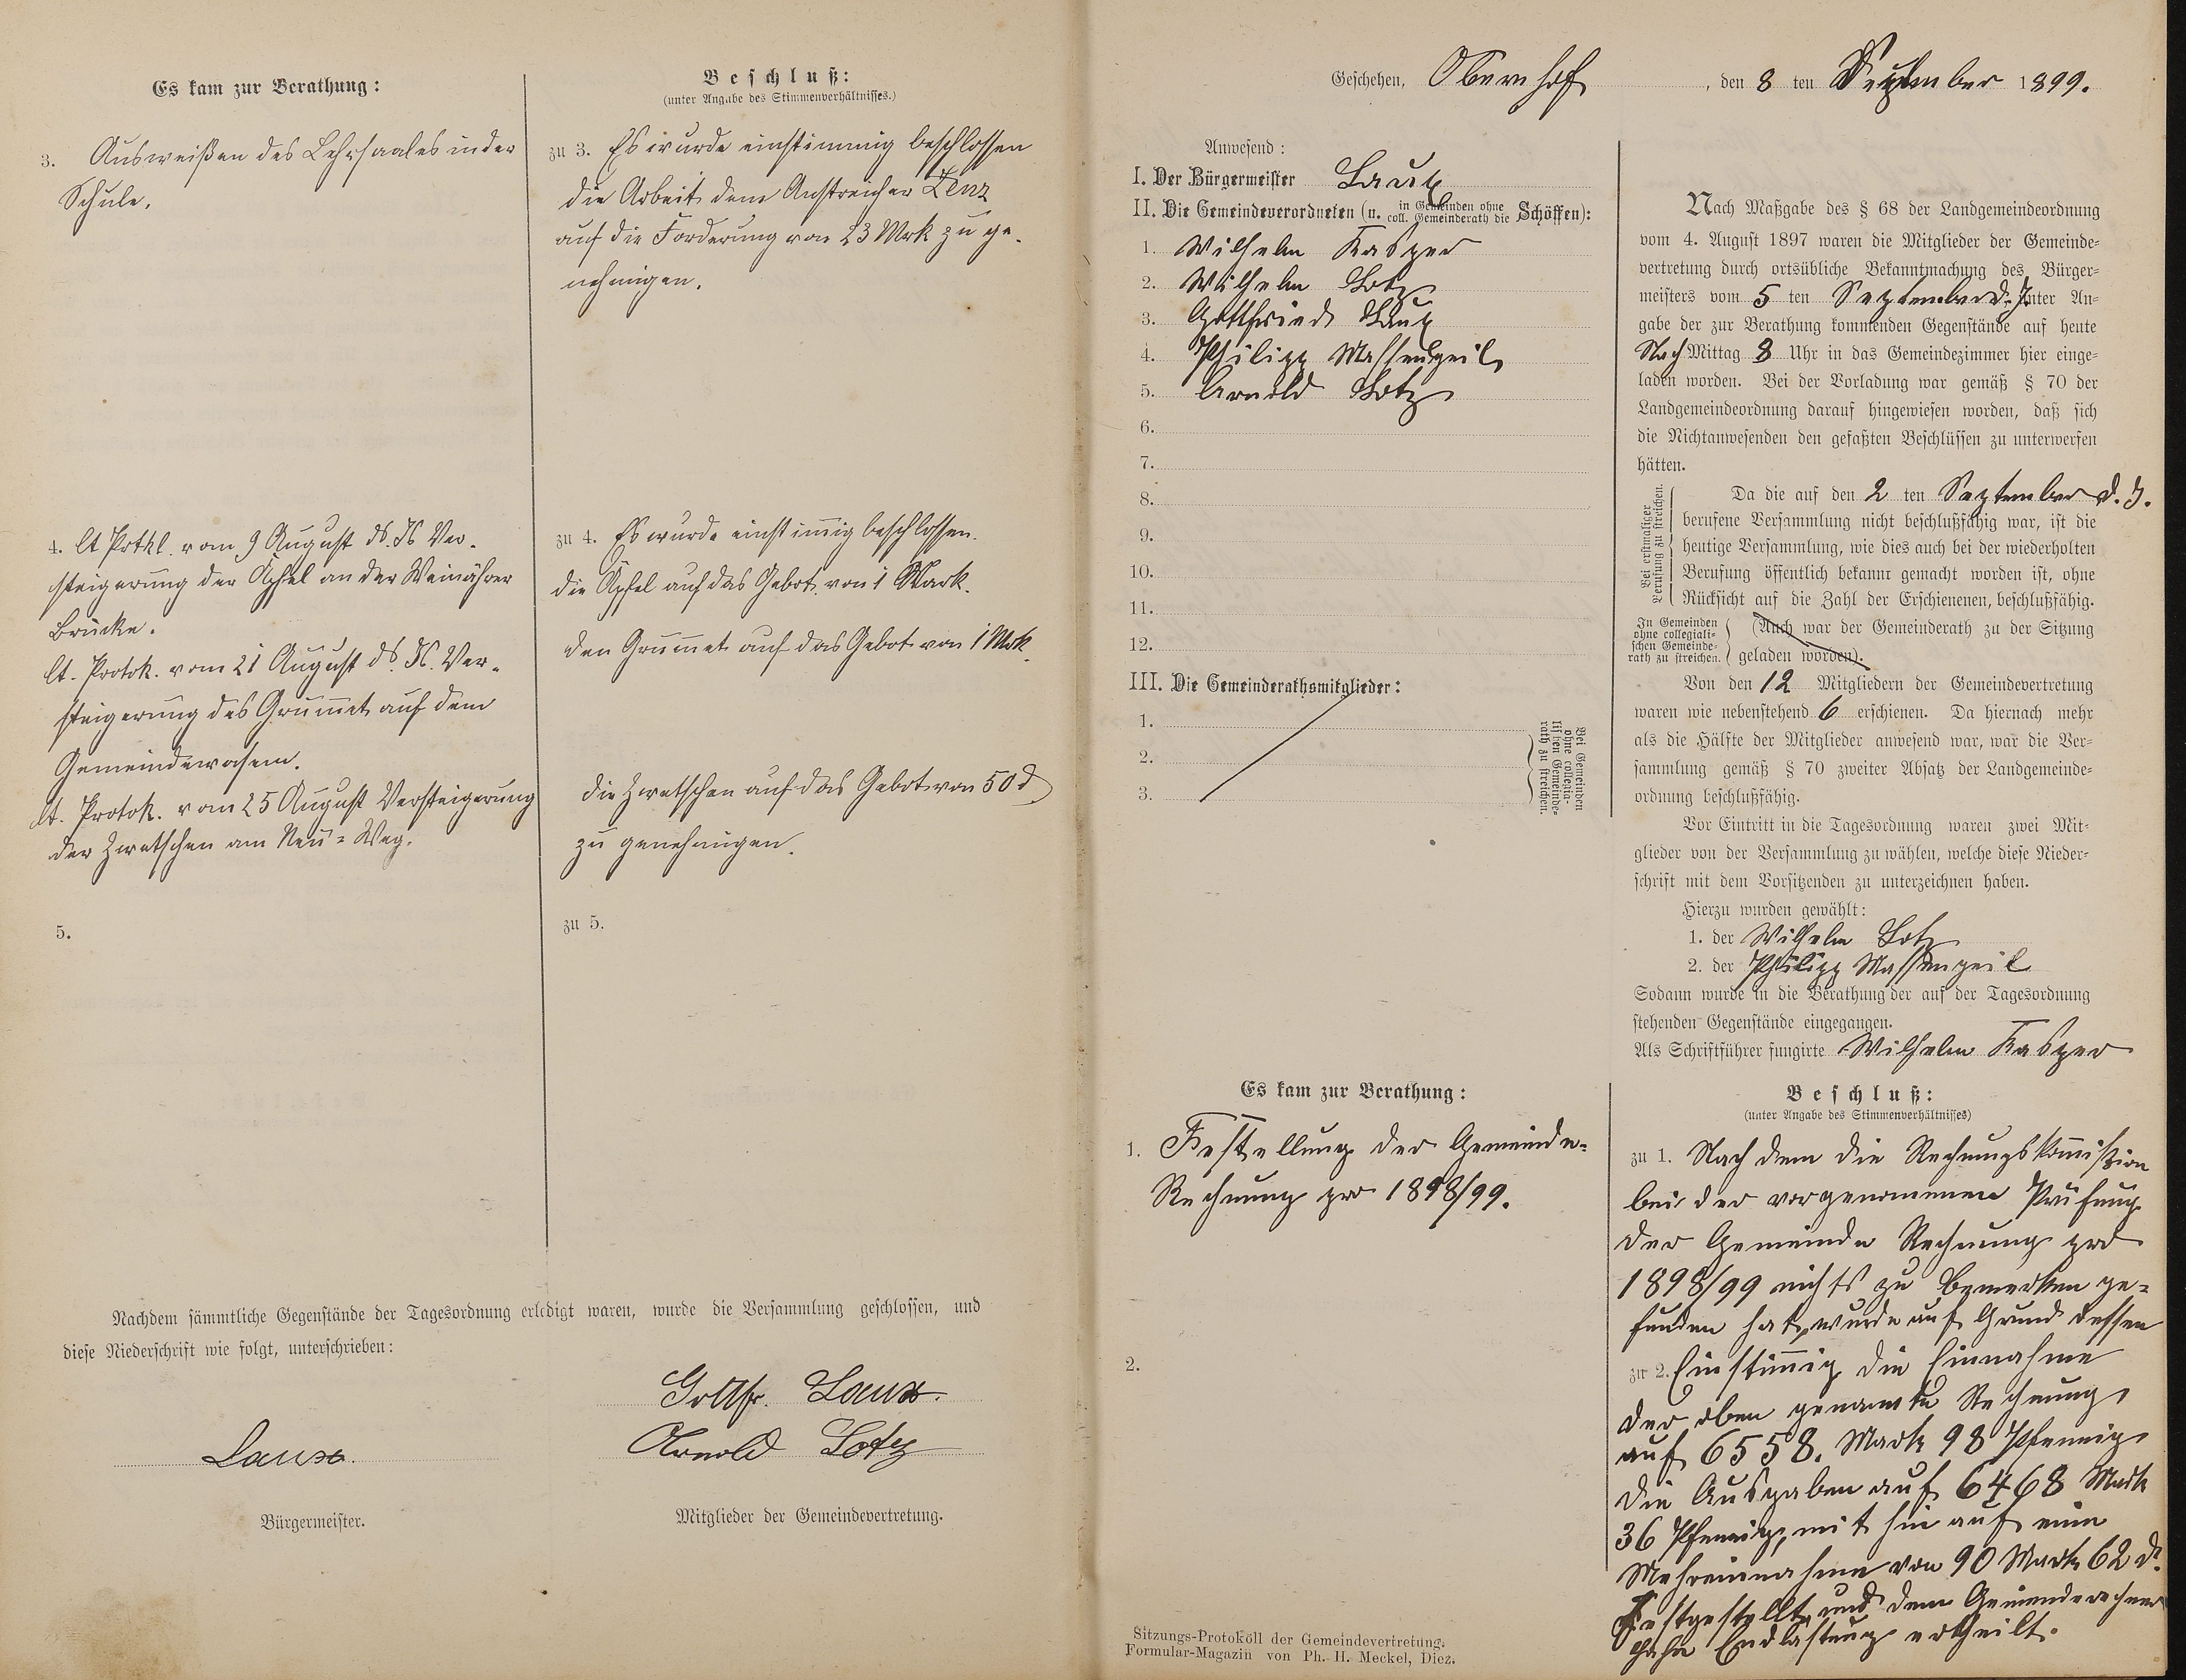 Es kam zur Berathung:
3. Ausweißen des Lehrsaales in der
Schule.
4. lt Protkl. vom 9 August ds. Js Ver-
steigerung der Äpfel an der Weinährer
Brücke.
lt. Protok. vom 21 August ds. Js. Ver-
steigerung des Grum̅et auf dem
Gemeindewasem.
lt. Protok. vom 25 August Versteigerung
der Zwetschen am Neu-Weg.
5.
Beschluß:
(unter Angabe des Stimmenverhältnisses.)
zu 3. Es wurde einstimmig beschlossen
die Arbeit dem Anstreicher Lenz
auf die Forderung von 23 Mrk zu ge-
nehmigen.
zu 4. Es wurde einstim̅ig beschlossen.
die Äpfel auf das Gebot von 1 Mark.
den Grum̅et auf das Gebot von 1 Mrk.
die Zwetschen auf das Gebot von 50 d
zu genehmigen.
zu 5.
Nachdem sämmtliche Gegenstände der Tagesordnung erledigt waren, wurde die Versammlung geschlossen, und
diese Niederschrift wie folgt, unterschrieben:
Gottfr. Laux.
Laux.
Arnold Lotz
Bürgermeister.
Mitglieder der Gemeindevertretung.
Geschehen, Obernhof, den 8 ten September 1899.
Anwesend:
I. Der Bürgermeister Laux
II. Die Gemeindeverordneten (u. in Gemeinden ohne coll. Gemeinderath die Schöffen):
1. Wilhelm Kasper
2. Wilhelm Lotz
3. Gottfried Laux
4. Philipp Massengeil
5. Arnold Lotz
6.
7.
8.
9.
10.
11.
12.
III. Die Gemeinderathsmitglieder:
1.
2.
3.
Bei Gemeinden
ohne collegia-
lischen Gemeinde-
rath zu streichen.
Nach Maßgabe des § 68 der Landgemeindeordnung
vom 4. August 1897 waren die Mitglieder der Gemeinde-
vertretung durch ortsübliche Bekanntmachung des Bürger-
meisters vom 5 ten September d. J. unter An-
gabe der zur Berathung kommenden Gegenstände auf heute
Nach Mittag 8 Uhr in das Gemeindezimmer hier einge-
laden worden. Bei der Vorladung war gemäß § 70 der
Landgemeindeordnung darauf hingewiesen worden, daß sich
die Nichtanwesenden den gefaßten Beschlüssen zu unterwerfen
hätten.
Bei erstmaliger
Berufung zu streichen.
Da die auf den 2 ten September d. J.
berufene Versammlung nicht beschlußfähig war, ist die
heutige Versammlung, wie dies auch bei der wiederholten
Berufung öffentlich bekannt gemacht worden ist, ohne
Rücksicht auf die Zahl der Erschienenen, beschlußfähig.
In Gemeinden
ohne collegiali-
schen Gemeinde-
rath zu streichen.
(Auch war der Gemeinderath zu der Sitzung
geladen worden).
Von den 12 Mitgliedern der Gemeindevertretung
waren wie nebenstehend 6 erschienen. Da hiernach mehr
als die Hälfte der Mitglieder anwesend war, war die Ver-
sammlung gemäß § 70 zweiter Absatz der Landgemeinde-
ordnung beschlußfähig.
Vor Eintritt in die Tagesordnung waren zwei Mit-
glieder von der Versammlung zu wählen, welche diese Nieder-
schrift mit dem Vorsitzenden zu unterzeichnen haben.
Hierzu wurden gewählt:
1. der Wilhelm Lotz
2. der Philipp Massengeil
Sodann wurde in die Berathung der auf der Tagesordnung
stehenden Gegenstände eingegangen.
Als Schriftführer fungirte Wilhelm Kasper
Es kam zur Berathung:
1. Feststellung der Gemeinde-
Rechnung pro 1898/99.
2.
Beschluß:
(unter Angabe des Stimmenverhältnisses)
zu 1. Nach dem die Rechnungskom̅ißion
bei der vorgenommenen Prüfung
der Gemeinde Rechnung pro
1898/99 nichts zu bemerken ge-
funden hat, wurde auf Grund dessen
zu 2. Einstim̅ig die Einnahme
der oben genannte Rechnung,
auf 6558. Mark 98 Pfennig
die Ausgaben auf 6468 Mark
36 Pfennig, mit hin auf eine
Mehreinnahme von 90 Mark 62 d.
Festgestellt, und dem Gemeinderechner
Endlastung ertheilt.
Sitzungs-Protokoll der Gemeindevertretung.
Formular-Magazin von Ph. H. Meckel, Diez.